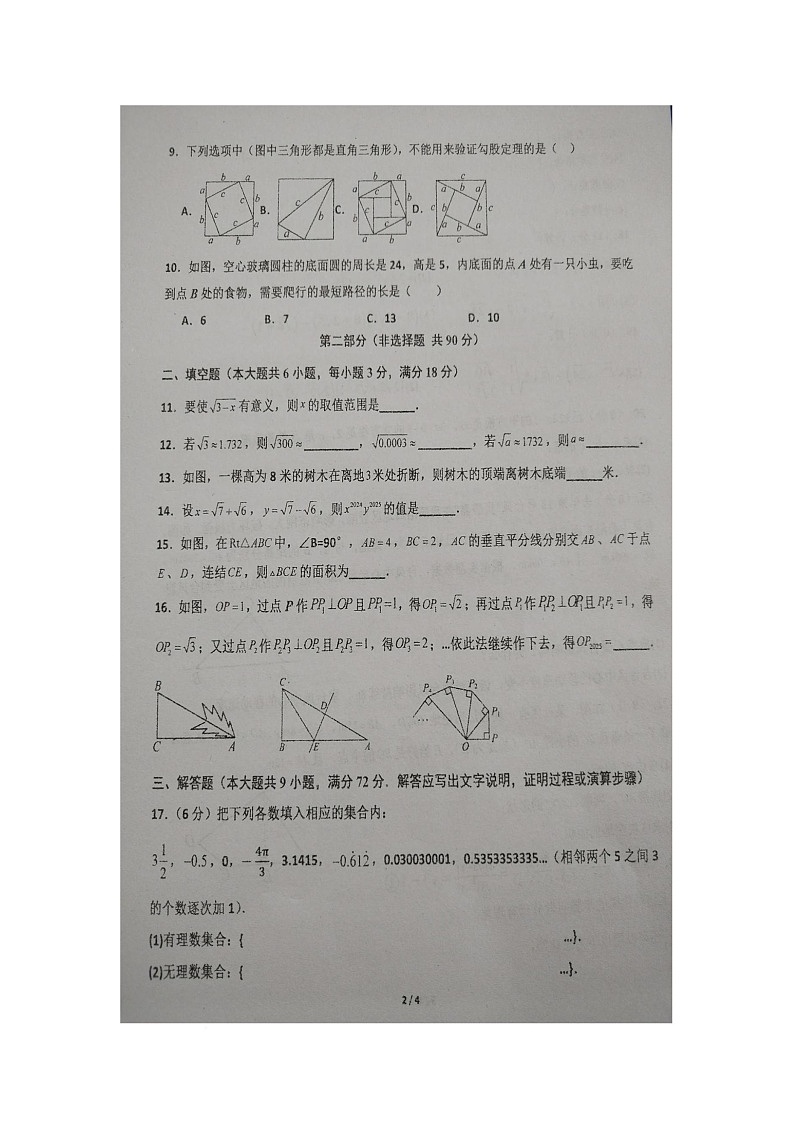 9. 下列选项中（图中三角形都是直角三角形），不能用来验证勾股定理的是（ ）
A. B. C. D.
10. 如图，空心玻璃圆柱的底面圆的周长是 24，高是 5，内底面的点 A 处有一只小虫，要吃
到点 B 处的食物，需要爬行的最短路径的长是（ ）
A. 6 B. 7 C. 13 D. 10
第二部分（非选择题 共 90 分）
二、填空题（本大题共 6 小题，每小题 3 分，满分 18 分）
11. 要使√(3-x)有意义，则 x 的取值范围是______.
12. 若√3≈1.732，则√300≈________，√0.0003≈________，若√a≈1732，则a≈________.
13. 如图，一棵高为 8 米的树木在离地3米处折断，则树木的顶端离树木底端______米.
14. 设x=√7+√6，y=√7-√6，则x²⁰²⁴y²⁰²⁵的值是______.
15. 如图，在Rt△ABC中，∠B=90°，AB=4，BC=2，AC的垂直平分线分别交AB、AC于点
E、D，连结CE，则△BCE的面积为______.
16. 如图，OP=1，过点P作PP₁⊥OP且PP₁=1，得OP₁=√2；再过点P₁作P₁P₂⊥OP₁且P₁P₂=1，得
OP₂=√3；又过点P₂作P₂P₃⊥OP₂且P₂P₃=1，得OP₃=2；…依此法继续作下去，得OP₂₀₂₅=______.
B C A
C D B E A
P₄ P₃ P₂ P₁ P O …
三、解答题（本大题共 9 小题，满分 72 分．解答应写出文字说明，证明过程或演算步骤）
17.（6 分）把下列各数填入相应的集合内：
3 1/2，-0.5，0，-4π/3，3.1415，-0.6̇12̇，0.030030001，0.5353353335…（相邻两个 5 之间 3
的个数逐次加 1）.
(1)有理数集合：{ …}.
(2)无理数集合：{ …}.
2 / 4